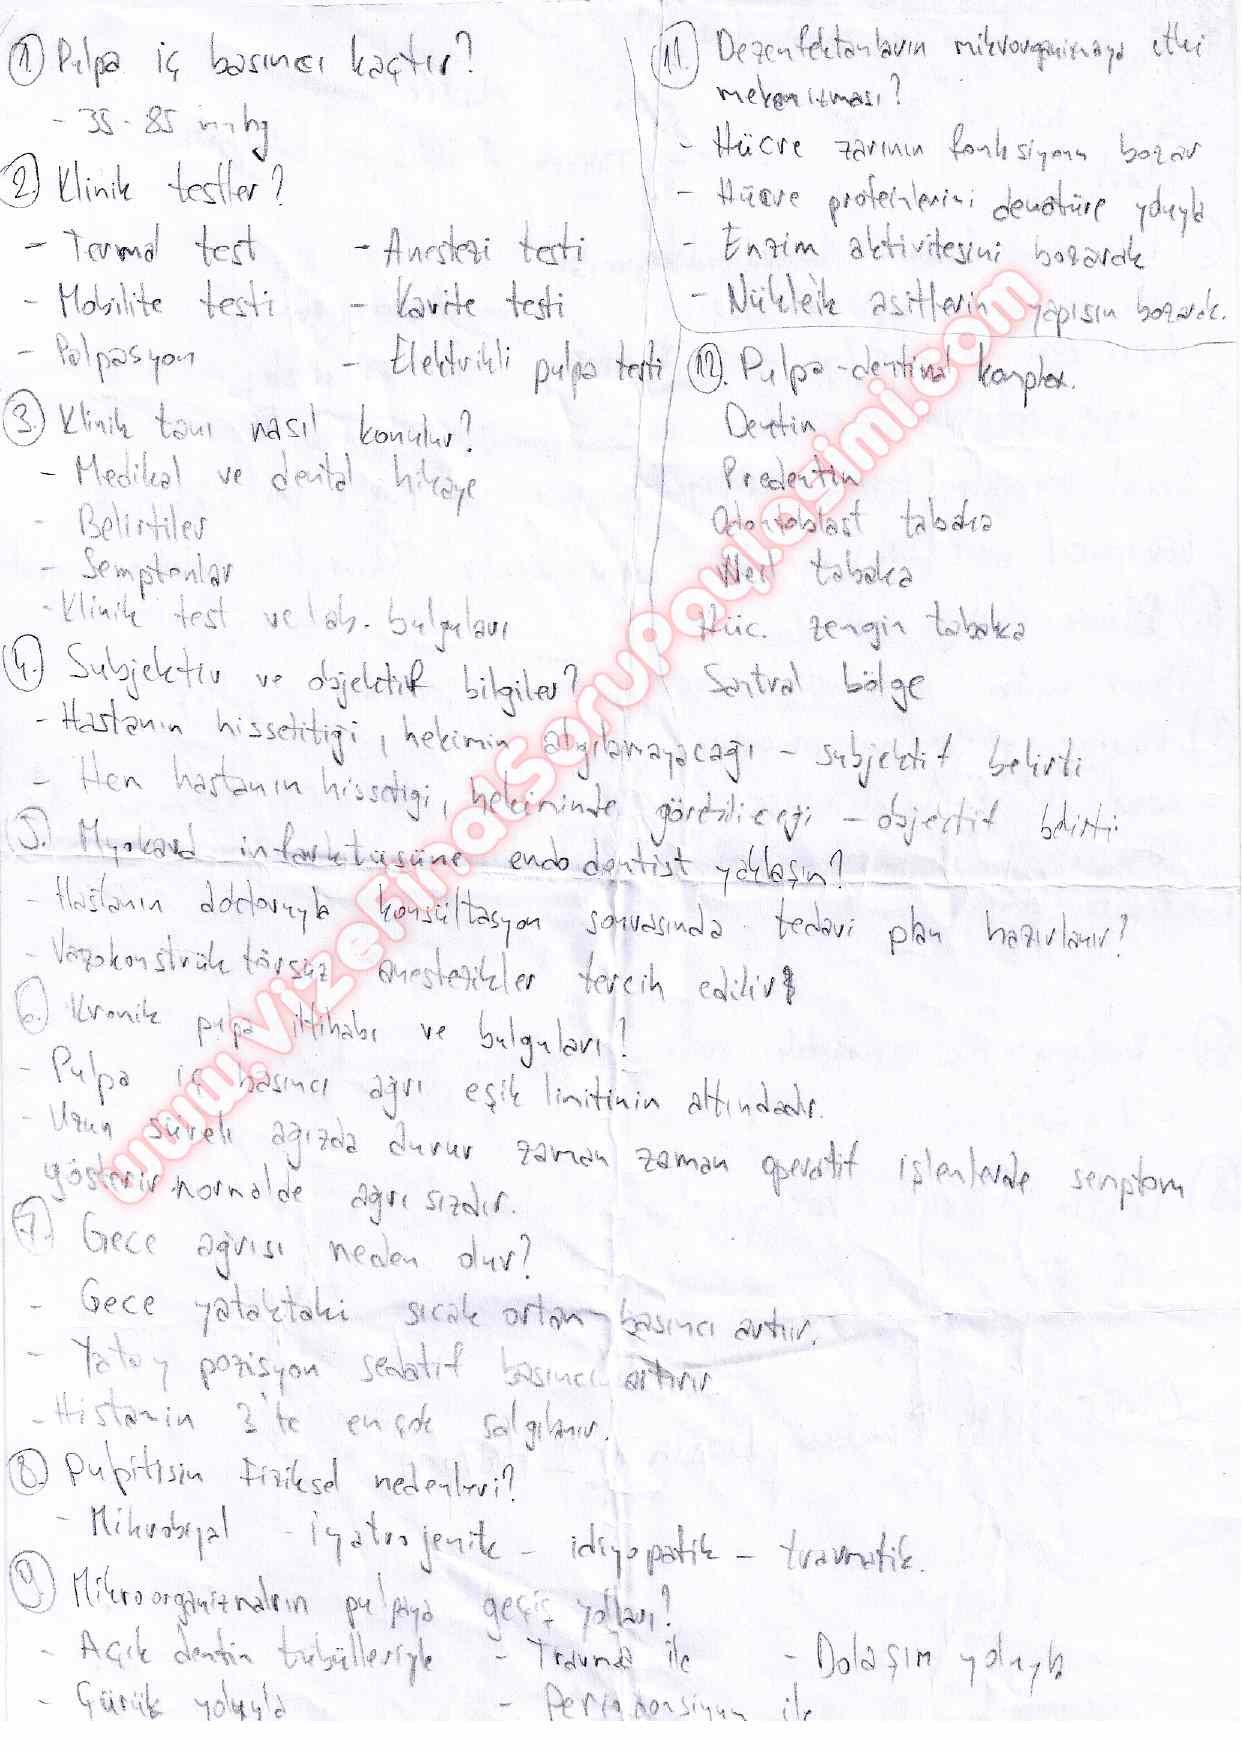 1) Pulpa iç basıncı kaçtır?
- 35-85 mmhg
2) Klinik testler?
- Termal test - Anestezi testi
- Mobilite testi - Kavite testi
- Palpasyon - Elektrikli pulpa testi
3. Klinik tanı nasıl konulur?
- Medikal ve dental hikaye
- Belirtiler
- Semptomlar
- Klinik test ve lab. bulguları
4. Subjektiv ve objektif bilgiler?
- Hastanın hissetitiği, hekimin algılamayacağı - subjektif belirti
- Hem hastanın hissetigi, hekiminde görebiliceği - objectif belirti
5. Myokard infarktüsüne endodontist yaklaşın?
- Hastanın doctoruyla konsültasyon sonrasında tedavi plan hazırlanır?
- Vazokonstrüktörsüz anestezikler tercih edilir
6. Kronik pulpa iltihabı ve bulguları?
- Pulpa iç basıncı ağrı eşik limitinin altındadır.
- Uzun süreli ağızda durur zaman zaman operatif işlemlerde semptom
gösterir normalde ağrısızdır.
7. Gece ağrısı neden olur?
- Gece yataktaki sıcak ortam basıncı artırır.
- Yatay pozisyon sedatif basıncı artırır
- Histamin 3'te ençok salgılanır.
8. Pulpitisin Fiziksel nedenleri?
- Mikrobiyal - iyatrojenik - idiyopatik - travmatik.
9. Mikroorganizmaların pulpaya geçiş yolları?
- Açık dentin tübülleriyle - Travma ile - Dolaşım yoluyla
- Çürük yoluyla - ile
11. Dezenfektanların mikroorganizmaya etki
mekanizması?
- Hücre zarının fonksiyonu bozar
- Hücre proteinlerini denatüre yoluyla
- Enzim aktivitesini bozarak
- Nükleik asitlerin yapısın bozarak.
12. Pulpa-dentinal komplex.
Dentin
Predentin
Odontoblast tabaka
Weil tabaka
Hüc. zengin tabaka
Santral bölge
www.VizeFinalSoruPaylasimi.com